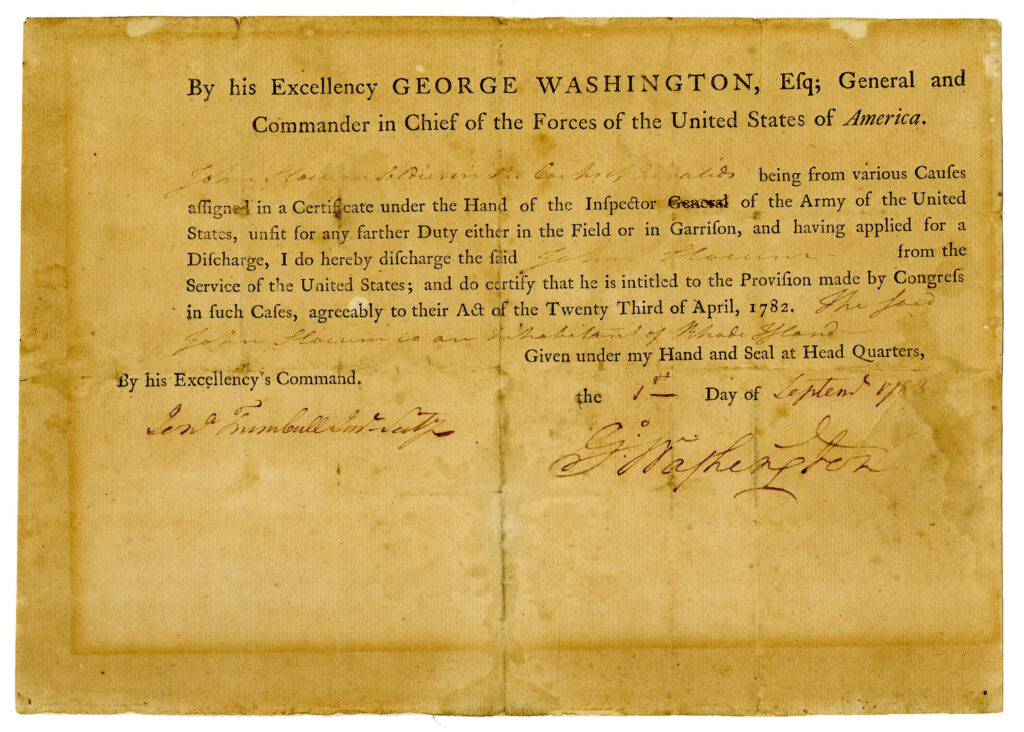 By his Excellency GEORGE WASHINGTON, Eſq; General and
Commander in Chief of the Forces of the United States of America.
John Slocum Soldier in the Corps of Invalids being from various Cauſes
aſſigned in a Certificate under the Hand of the Inſpector General of the Army of the United
States, unfit for any farther Duty either in the Field or in Garriſon, and having applied for a
Diſcharge, I do hereby diſcharge the ſaid John Slocum from the
Service of the United States; and do certify that he is intitled to the Proviſion made by Congreſs
in ſuch Caſes, agreeably to their Act of the Twenty Third of April, 1782. The said
John Slocum is an inhabitant of Rhode Island
Given under my Hand and Seal at Head Quarters,
By his Excellency's Command.
the 1st Day of Septemr
Jona Trumbull Junr Secty
Go Washington